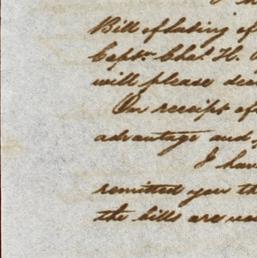 Bill of lading of
Captn Chas. H.
will please
On receipt of
advantage and
I have
remitted you th
the bills are